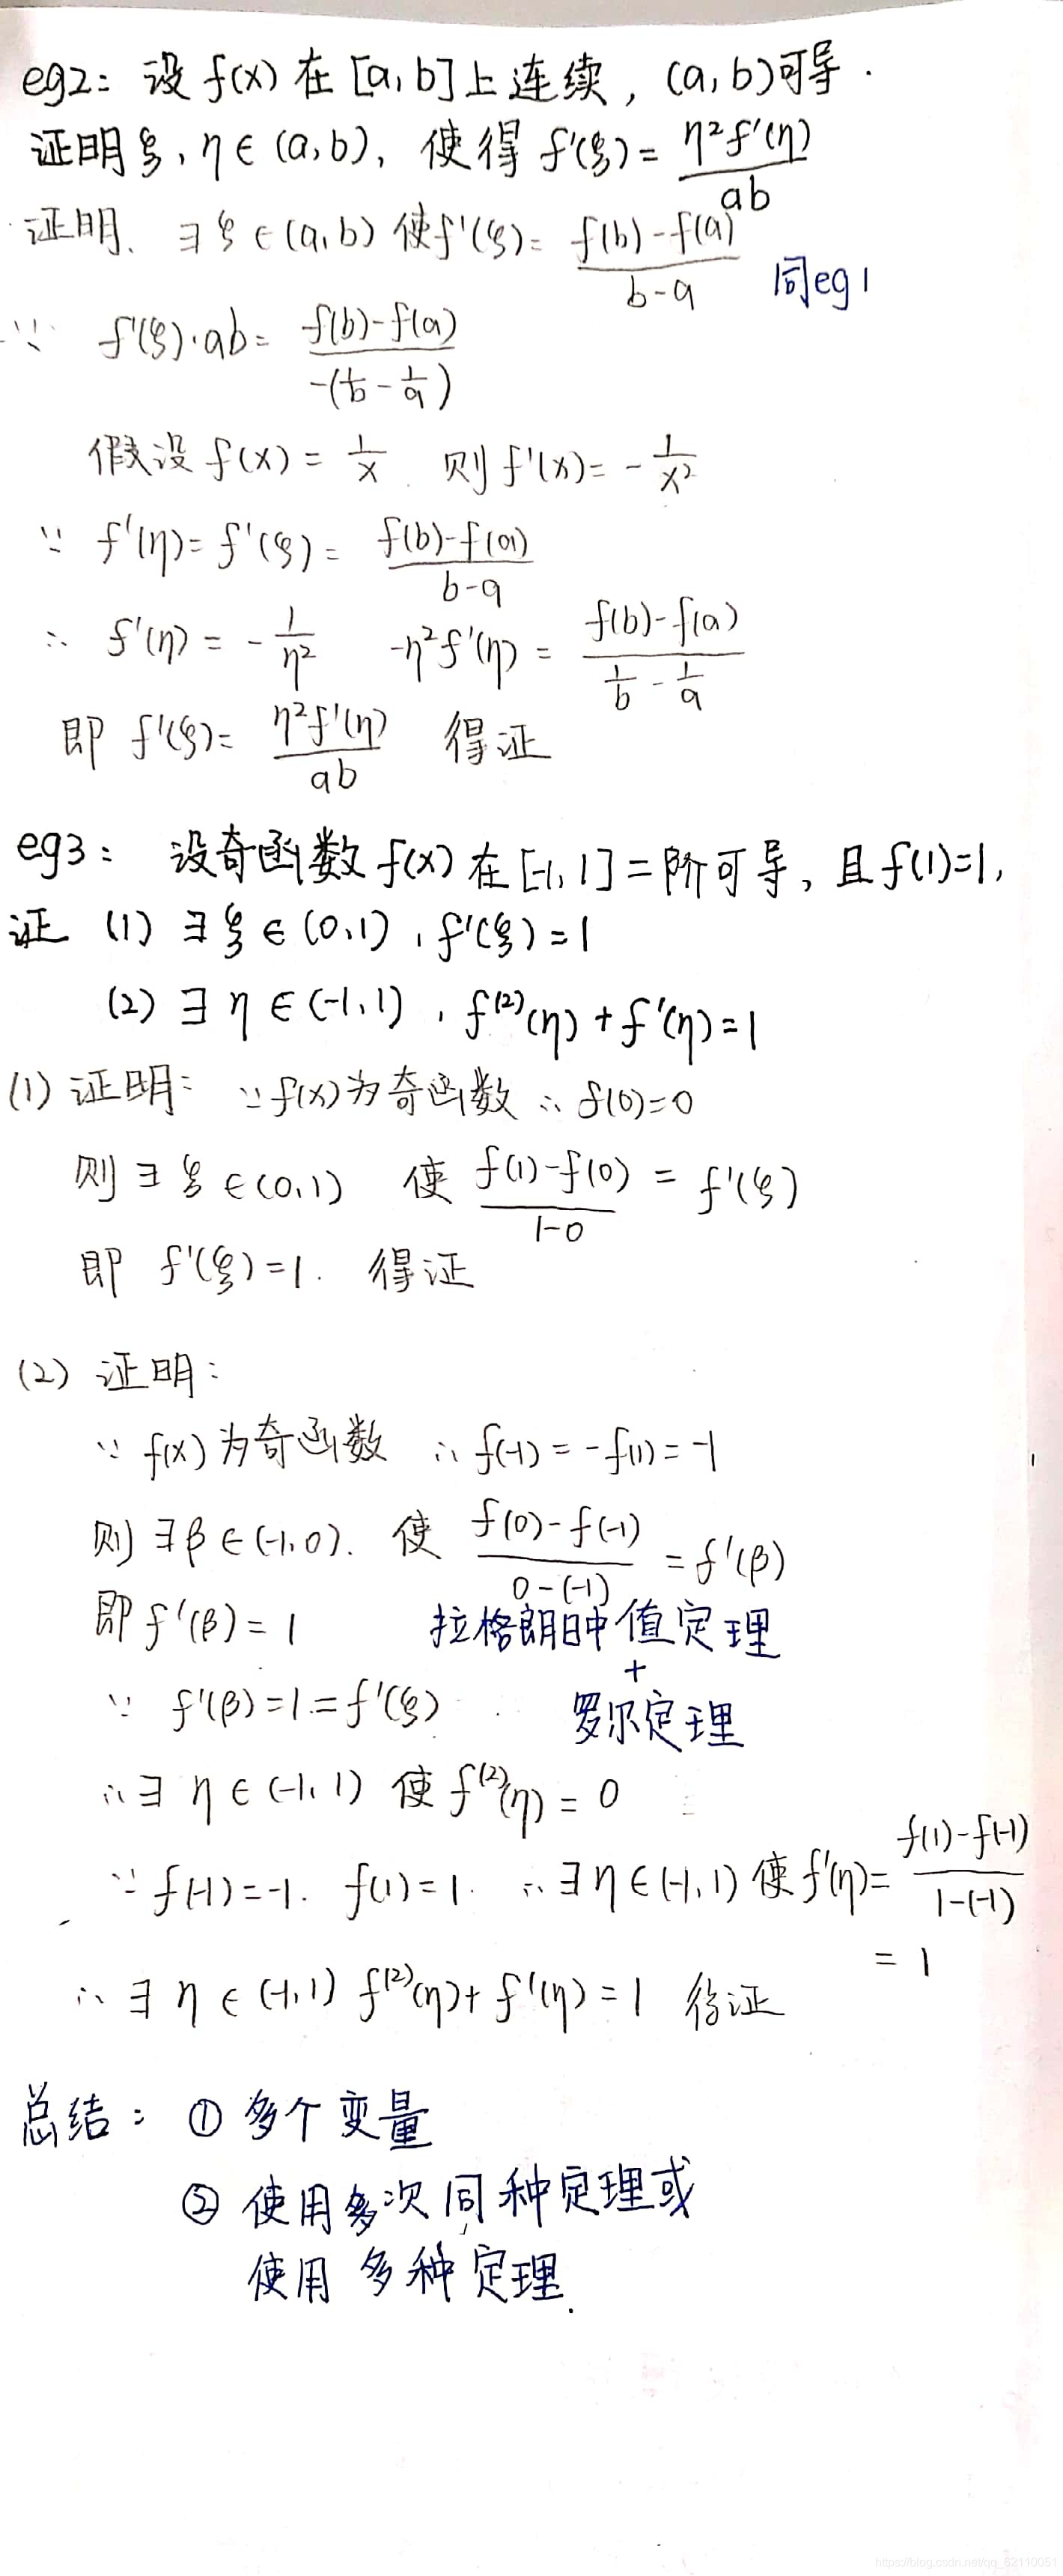 eg2: 设 f(x) 在 [a,b]上连续, (a,b)可导.
证明ξ,η∈(a,b), 使得 f'(ξ)= η²f'(η)/ab
证明. ∃ξ∈(a,b) 使f'(ξ)= (f(b)-f(a))/(b-a) 同eg1
∵ f'(ξ)·ab= (f(b)-f(a))/(-(1/b - 1/a))
假设 f(x)= 1/x. 则f'(x)= -1/x²
∵ f'(η)=f'(ξ)= (f(b)-f(a))/(b-a)
∴ f'(η)= -1/η² -η²f'(η)= (f(b)-f(a))/(1/b - 1/a)
即 f'(ξ)= η²f'(η)/ab 得证
eg3: 设奇函数f(x)在[-1,1]二阶可导, 且f(1)=1,
证 (1) ∃ξ∈(0,1), f'(ξ)=1
(2) ∃η∈(-1,1), f⁽²⁾(η)+f'(η)=1
(1) 证明: ∵f(x)为奇函数 ∴f(0)=0
则∃ξ∈(0,1) 使 (f(1)-f(0))/(1-0) = f'(ξ)
即 f'(ξ)=1. 得证
(2) 证明:
∵ f(x)为奇函数 ∴f(-1)=-f(1)=-1
则∃β∈(-1,0). 使 (f(0)-f(-1))/(0-(-1)) =f'(β)
即f'(β)=1 拉格朗日中值定理
+
∵ f'(β)=1=f'(ξ) 罗尔定理
∴∃η∈(-1,1) 使f⁽²⁾(η)=0
∵f(-1)=-1. f(1)=1. ∴∃η∈(-1,1)使f'(η)= (f(1)-f(-1))/(1-(-1))
=1
∴∃η∈(-1,1) f⁽²⁾(η)+f'(η)=1 得证
总结: ① 多个变量
② 使用多次同种定理或
使用多种定理.
https://blog.csdn.net/qq_52110051